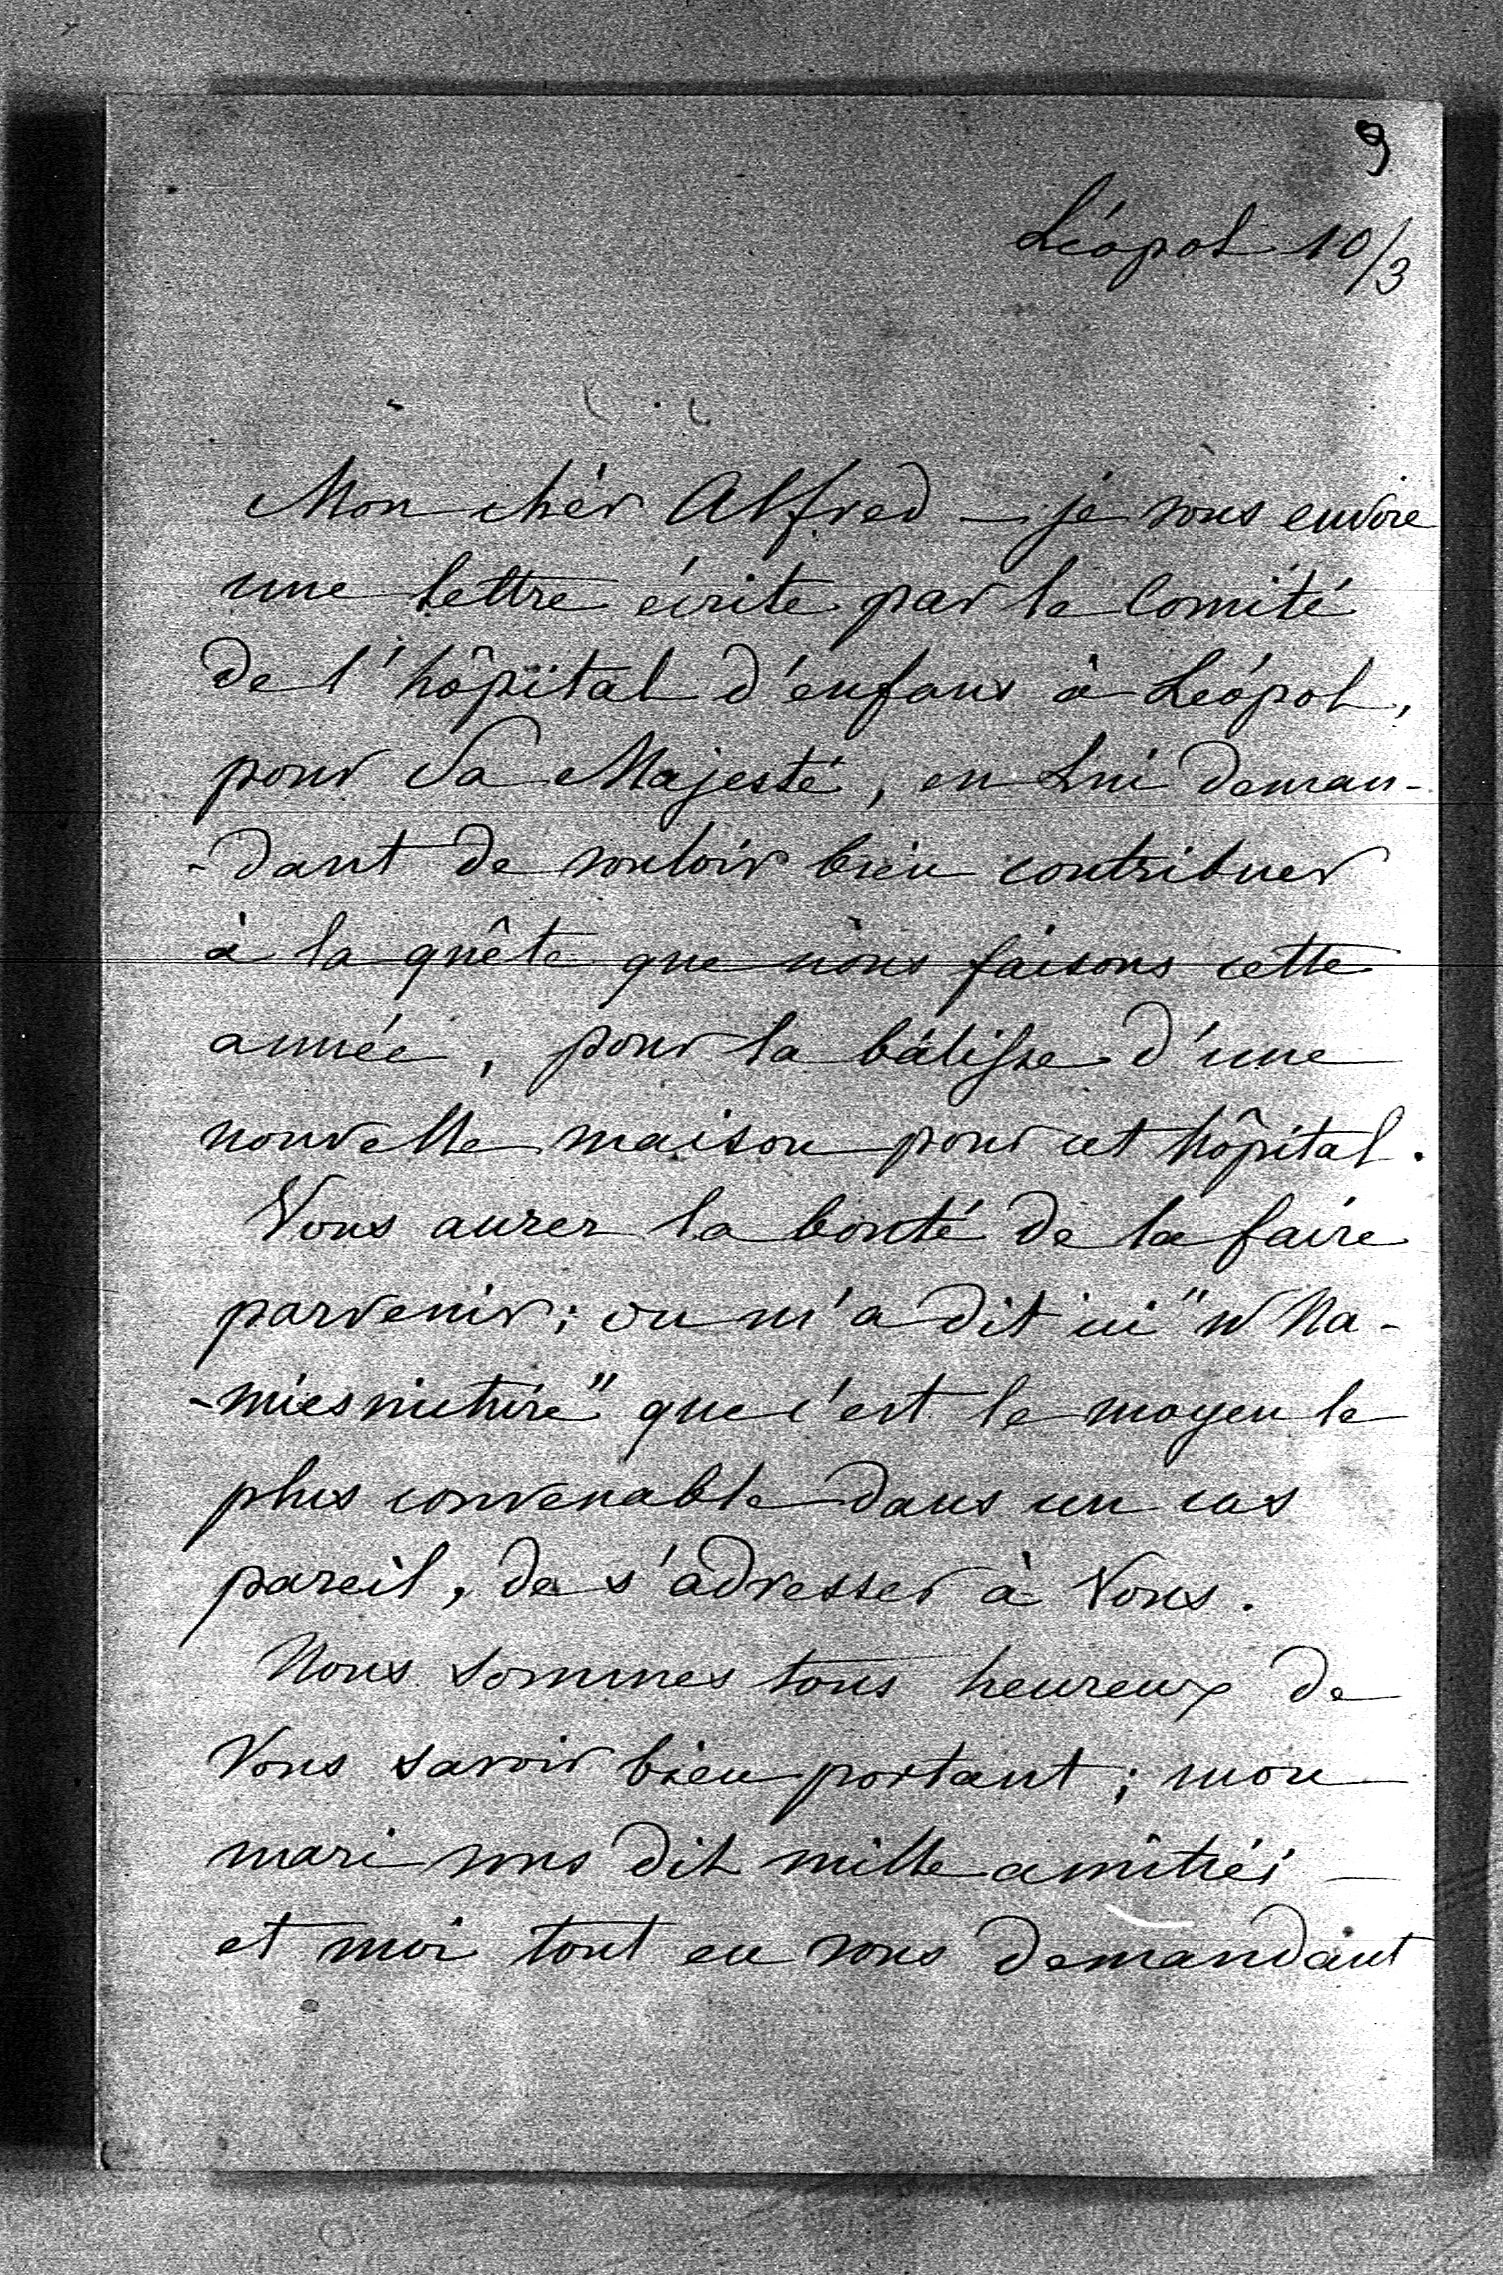 9
Léopol 10/3
Mon chèr Alfred — je vous envoie
une lettre écrite par le Comité
de l'hôpital d'enfans à Léopol,
pour Sa Majesté, en Lui deman-
-dant de vouloir bien contribuer
à la quête que nous faisons cette
année, pour la bâtisse d'une
nouvelle maison pour cet hôpital.
Vous aurez la bonté de la faire
parvenir; on m'a dit ici "w Na-
-miesnictwie" que c'est le moyen le
plus convenable dans un cas
pareil, de s'adresser à Vous.
Nous sommes tous heureux de
Vous savoir bien portant; mon
mari vous dit mille amitiés —
et moi tout en vous demandant